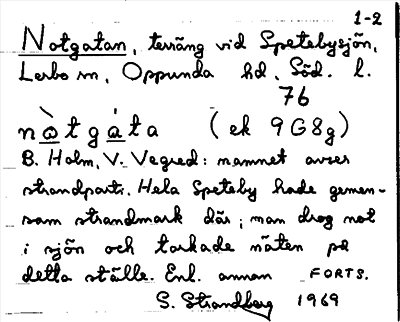 1-2
Notgatan, terräng vid Spetebysjön,
Lerbo sn, Oppunda hd, Söd. l.
76
nò̲tgá̲ta (ek 9G8g)
B. Holm, V. Vegred: namnet avser
strandparti. Hela Speteby hade gemen-
sam strandmark där; man drog not
i sjön och torkade näten på
detta ställe. Enl. annan FORTS.
S. Strandberg 1969